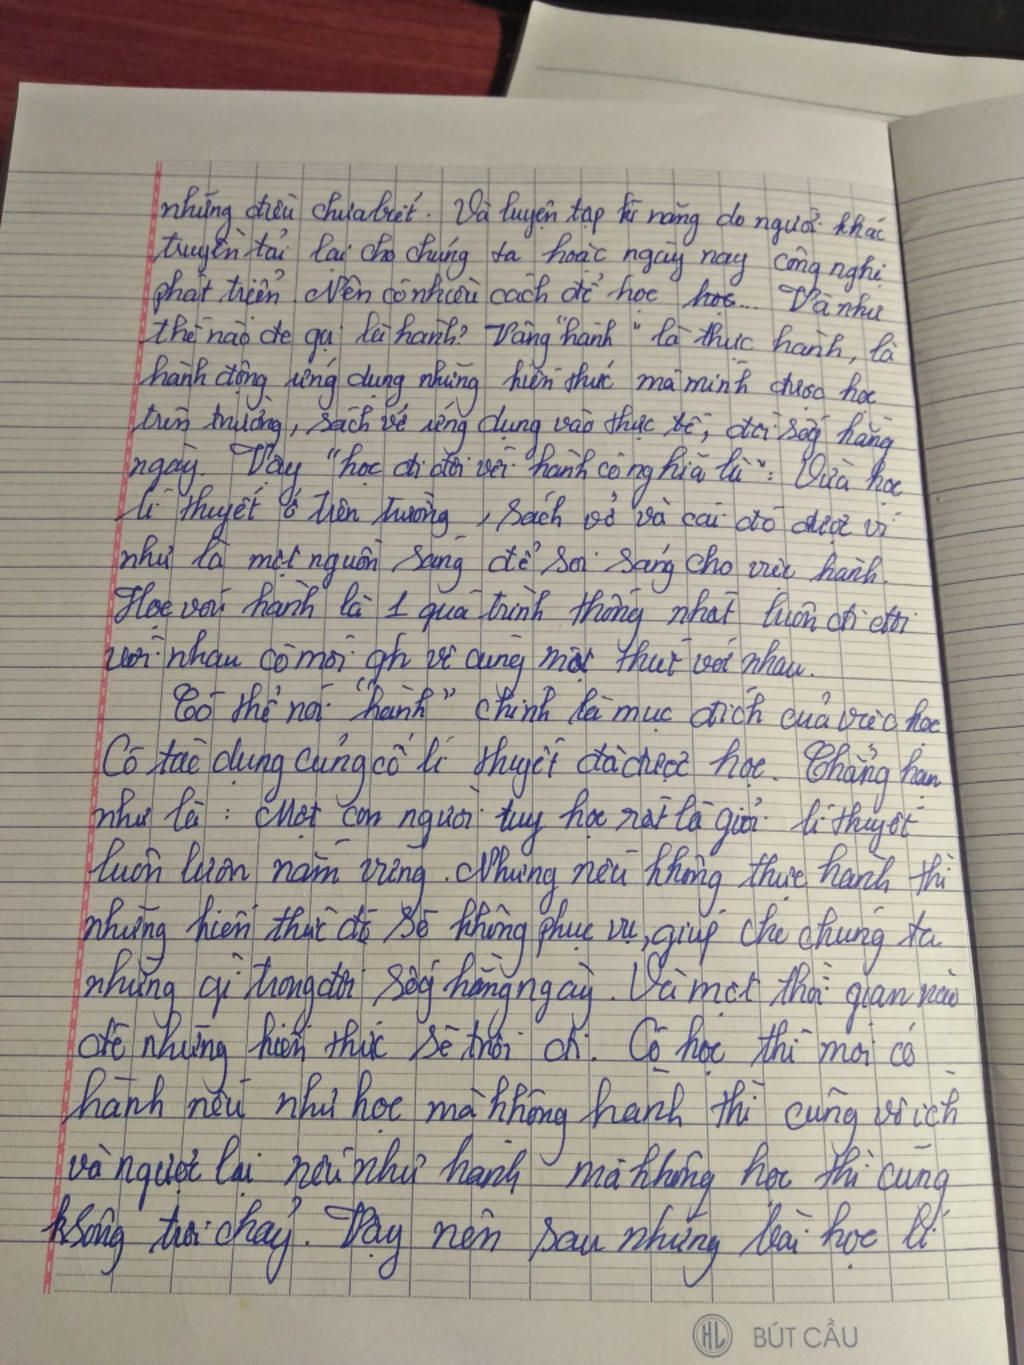 những điều chưa biết. Và luyện tạp kĩ năng do người khác
truyền tải lại cho chúng ta hoặc ngày nay công nghị
phát triển Nên có nhiều cách để học học... Và như
thế nào để gọi là hành? Vâng "hành" là thực hành, là
hành động ứng dụng những kiến thức mà mình được học
trên trường, sách vở ứng dụng vào thực tế, đời sốg hằng
ngày. Vậy "học đi đôi với hành có nghĩa là": Vừa học
lí thuyết ở trên trường, sách vở và cái đó được ví
như là một nguồn sáng để soi sáng cho việc hành.
Học với hành là 1 quá trình thống nhất luôn đi đôi
với nhau có mối qh về cùng một thứ với nhau.
Có thể nói "hành" chính là mục đích của việc học
Có tác dụng củng cố lí thuyết đã được học. Chẳng hạn
như là: Một con người tuy học rất là giỏi lí thuyết
luôn luôn nắm vững. Nhưng nếu không thực hành thì
những kiến thức đó sẽ không phục vụ, giúp cho chúng ta
những gì trong đời sốg hằng ngày. Và một thời gian nào
đó những kiến thức sẽ trôi đi. Có học thì mới có
hành nếu như học mà không hành thì cũng vô ích
và ngược lại nếu như hành mà không học thì cũng
không trôi chảy. Vậy nên sau những bài học lí
HL BÚT CẦU